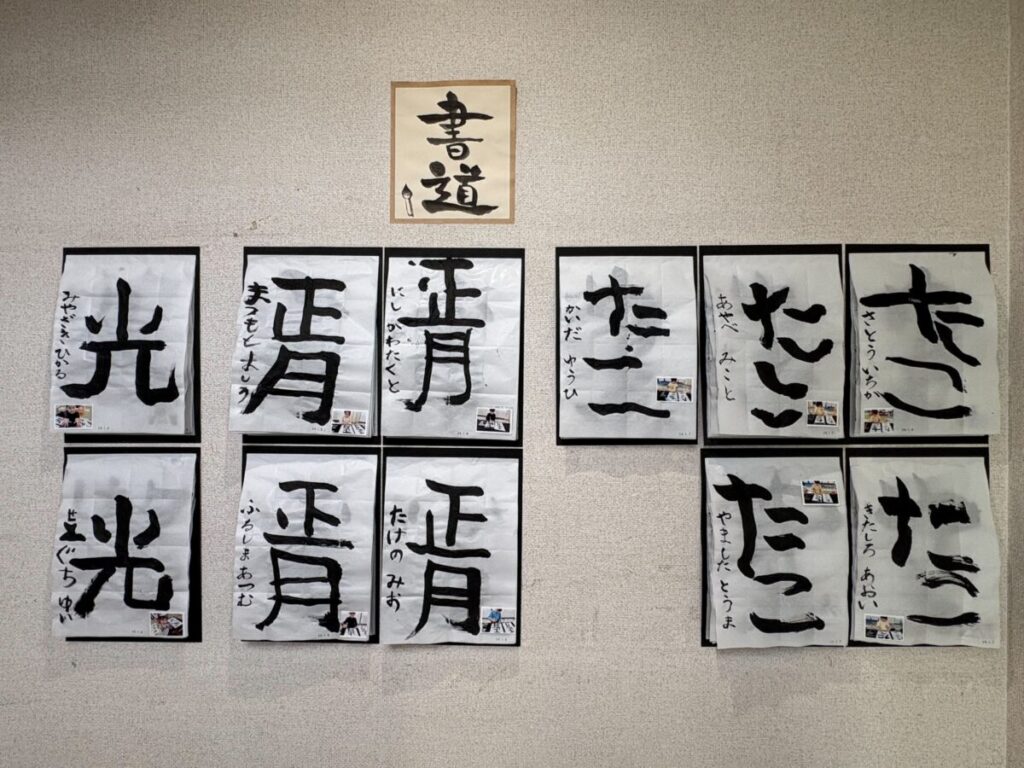 書道
光
みやざき ひかる
正月
まつもと
正月
にしかわ たくと
たこ
かいだ ゆうひ
たこ
あやべ みこと
たこ
さとう いちか
光
ぐち ゆい
正月
ふるしま あつむ
正月
たけの みお
たこ
やました とうま
たこ
きたしろ あおい